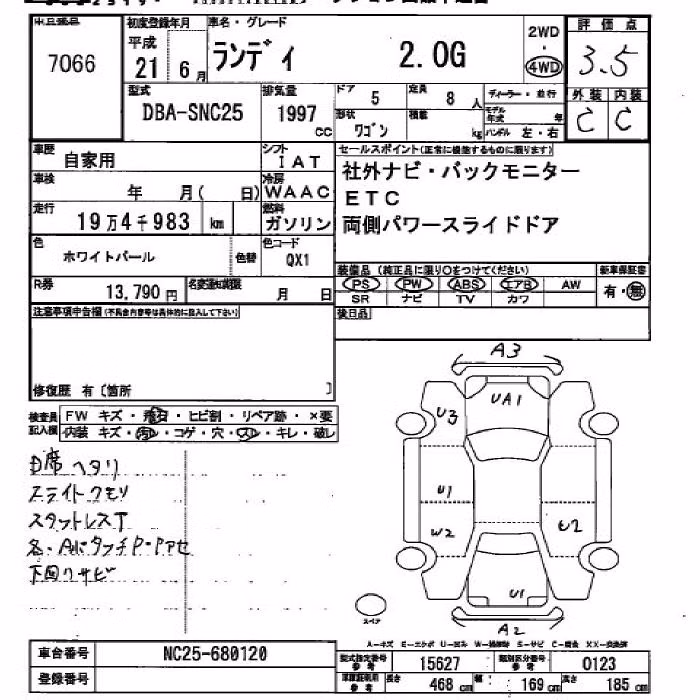 出品番号 初度登録年月 車名・グレード 2WD 評価点
7066 平成 21 6月 ランディ 2.0G ・ 4WD 3.5
型式 排気量 ドア 5 定員 8人 ディーラー・並行 外装 内装
DBA-SNC25 1997 cc 形状 ワゴン 積載 kg モデル年式 年 C C
ハンドル 左・右
車歴 自家用 シフト IAT セールスポイント(正常に機能するものに限ります)
車検 年 月( 日) 冷房 WAAC 社外ナビ・バックモニター
ETC
走行 19万4千983 km 燃料 ガソリン 両側パワースライドドア
色 ホワイトパール 色替 色コード QX1
装備品(純正品に限り○をつけてください) 新車保証書
R券 13,790円 名変通知期限 月 日 PS PW ABS エアB AW 有・無
SR ナビ TV カワ
注意事項申告欄(不具合内容等は具体的に記入して下さい) 後日品
修復歴 有〔箇所 〕
検査員記入欄 FW キズ・飛石・ヒビ割・リペア跡・×要
内装 キズ・汚れ・コゲ・穴・スレ・キレ・破レ
A3
UA1
U3
U1
W2
U2
U1
A2
D席 ヘタリ
スライトクモリ
スタットレスT
下回りサビ
スペア
A-キズ E-エクボ U-凹み W-補修跡 S-サビ C-腐食 XX-交換済
車台番号 NC25-680120
登録番号
型式指定番号 参考 15627 類別区分番号 参考 0123
参考 長さ 468 cm 巾 169 cm 高さ 185 cm